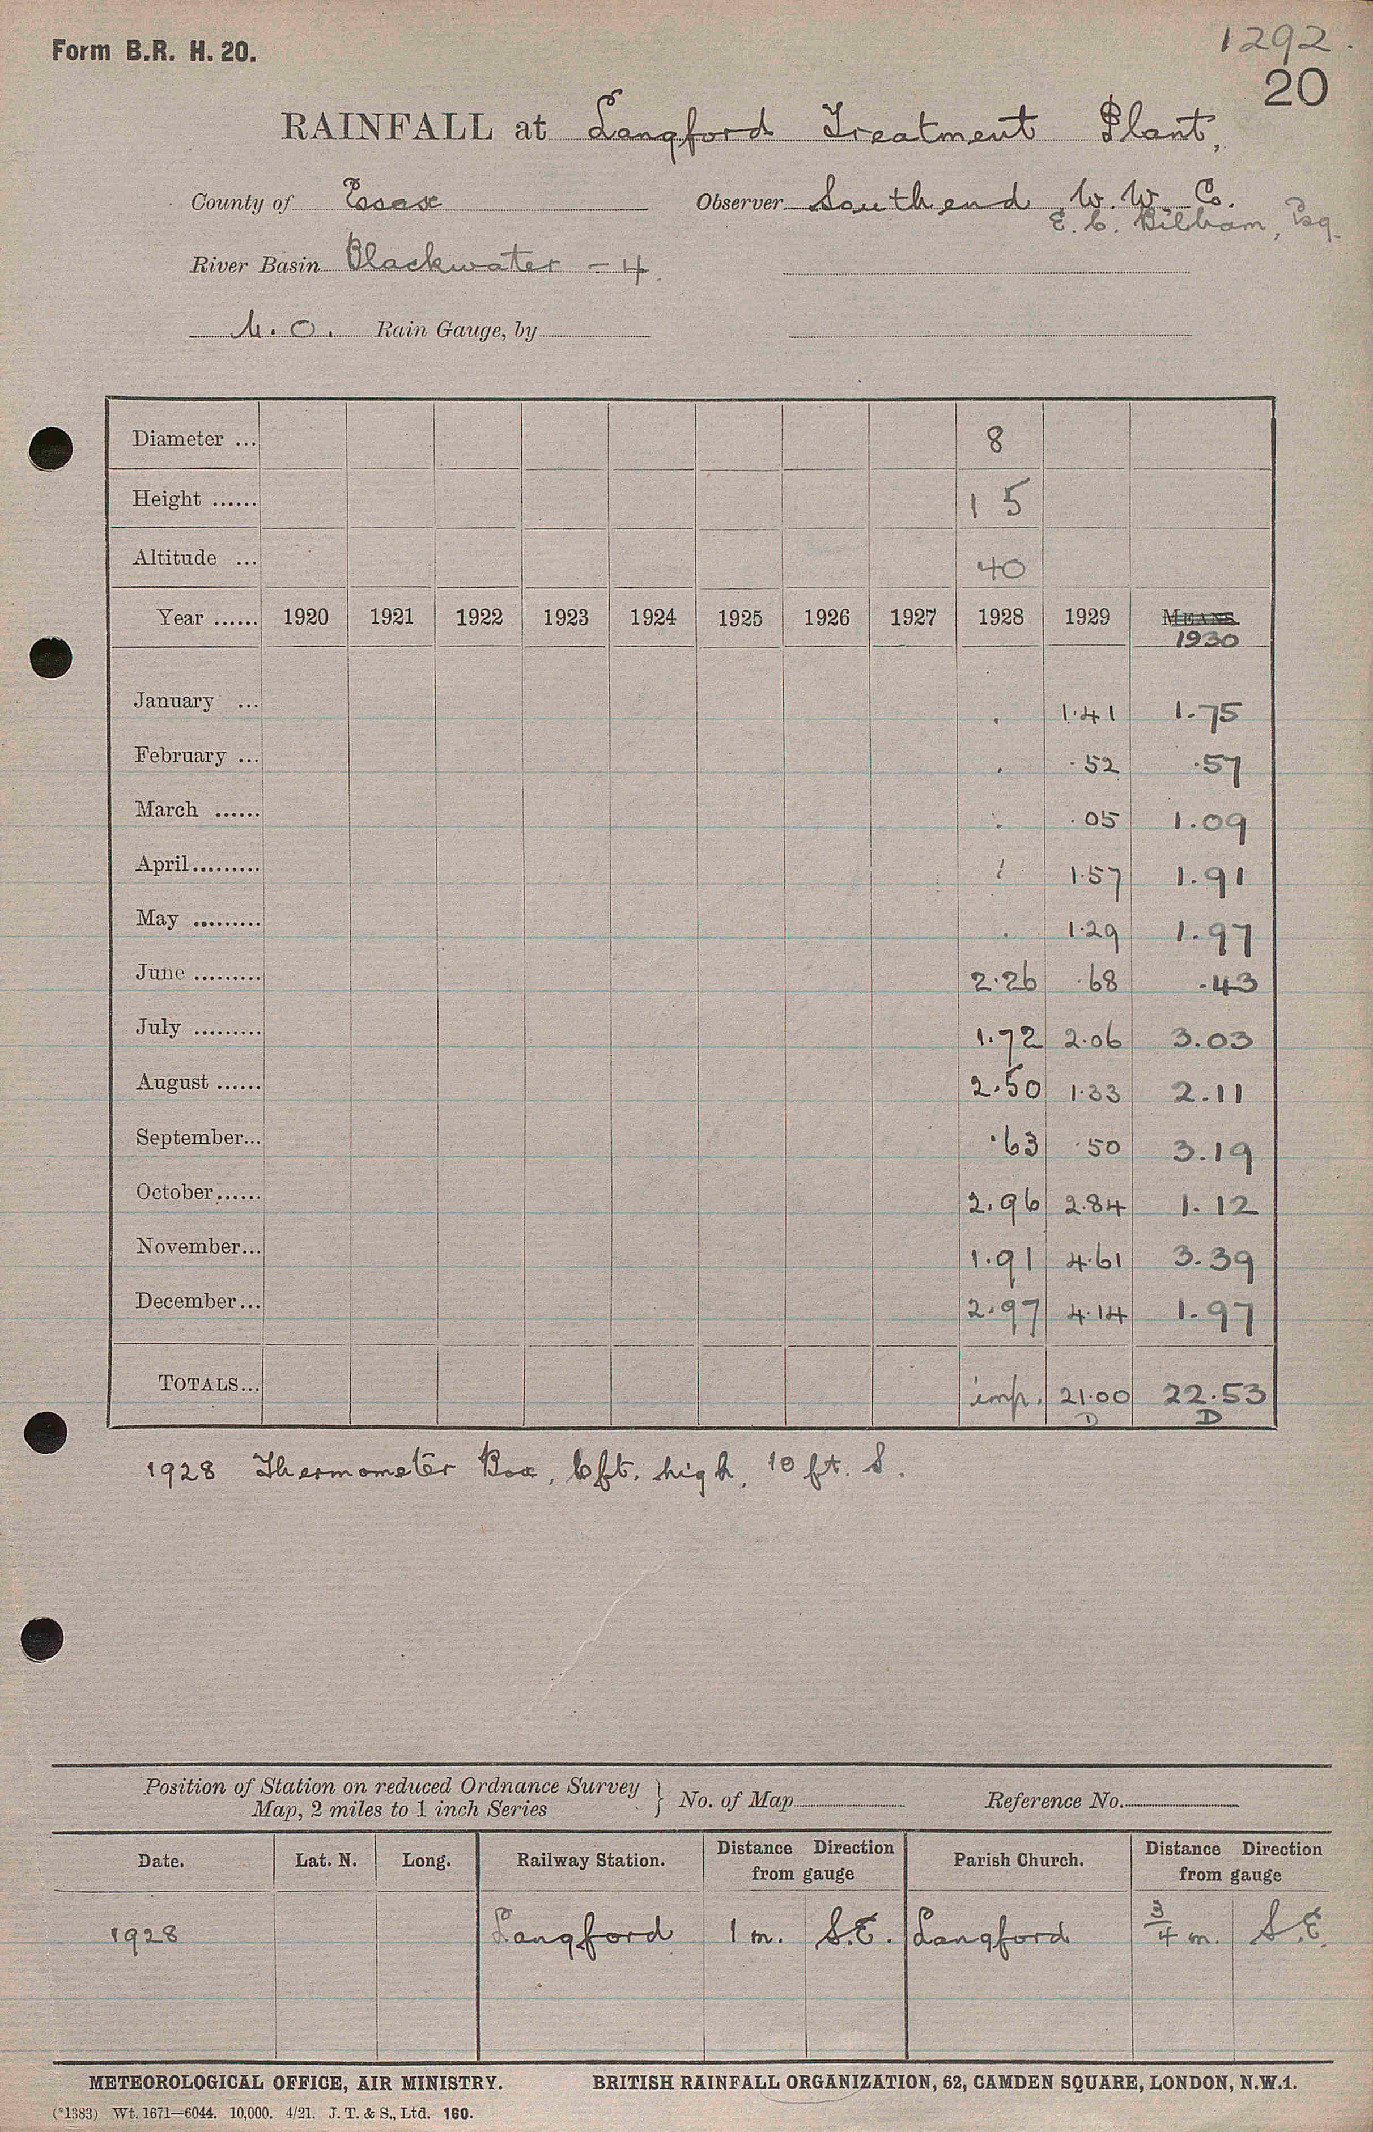 Form B.R. H. 20.
1292.
20
RAINFALL at Langford Treatment Plant,
County of Essex Observer Southend W. W. Co.
E. C. Bilham, Esq.
River Basin Blackwater - 4.
M. O. Rain Gauge, by
Diameter ... 8
Height ...... 1 5
Altitude ... 40
Year ...... 1920 1921 1922 1923 1924 1925 1926 1927 1928 1929 MEANS
1930
January ... . 1.41 1.75
February ... . .52 .57
March ...... . .05 1.09
April......... 1.57 1.91
May ......... . 1.29 1.97
June ......... 2.26 .68 .43
July ......... 1.72 2.06 3.03
August ...... 2.50 1.33 2.11
September... .63 .50 3.19
October...... 2.96 2.84 1.12
November... 1.91 4.61 3.39
December... 2.97 4.14 1.97
TOTALS... imp. 21.00 22.53
D D
1928 Thermometer Box, 6ft. high, 10 ft. S.
Position of Station on reduced Ordnance Survey
Map, 2 miles to 1 inch Series } No. of Map Reference No.
Date. Lat. N. Long. Railway Station. Distance Direction from gauge Parish Church. Distance Direction from gauge
1928 Langford 1 m. S.E. Langford 3/4 m. S.E.
METEOROLOGICAL OFFICE, AIR MINISTRY. BRITISH RAINFALL ORGANIZATION, 62, CAMDEN SQUARE, LONDON, N.W.1.
(*1383) Wt. 1671—6044. 10,000. 4/21. J. T. & S., Ltd. 160.